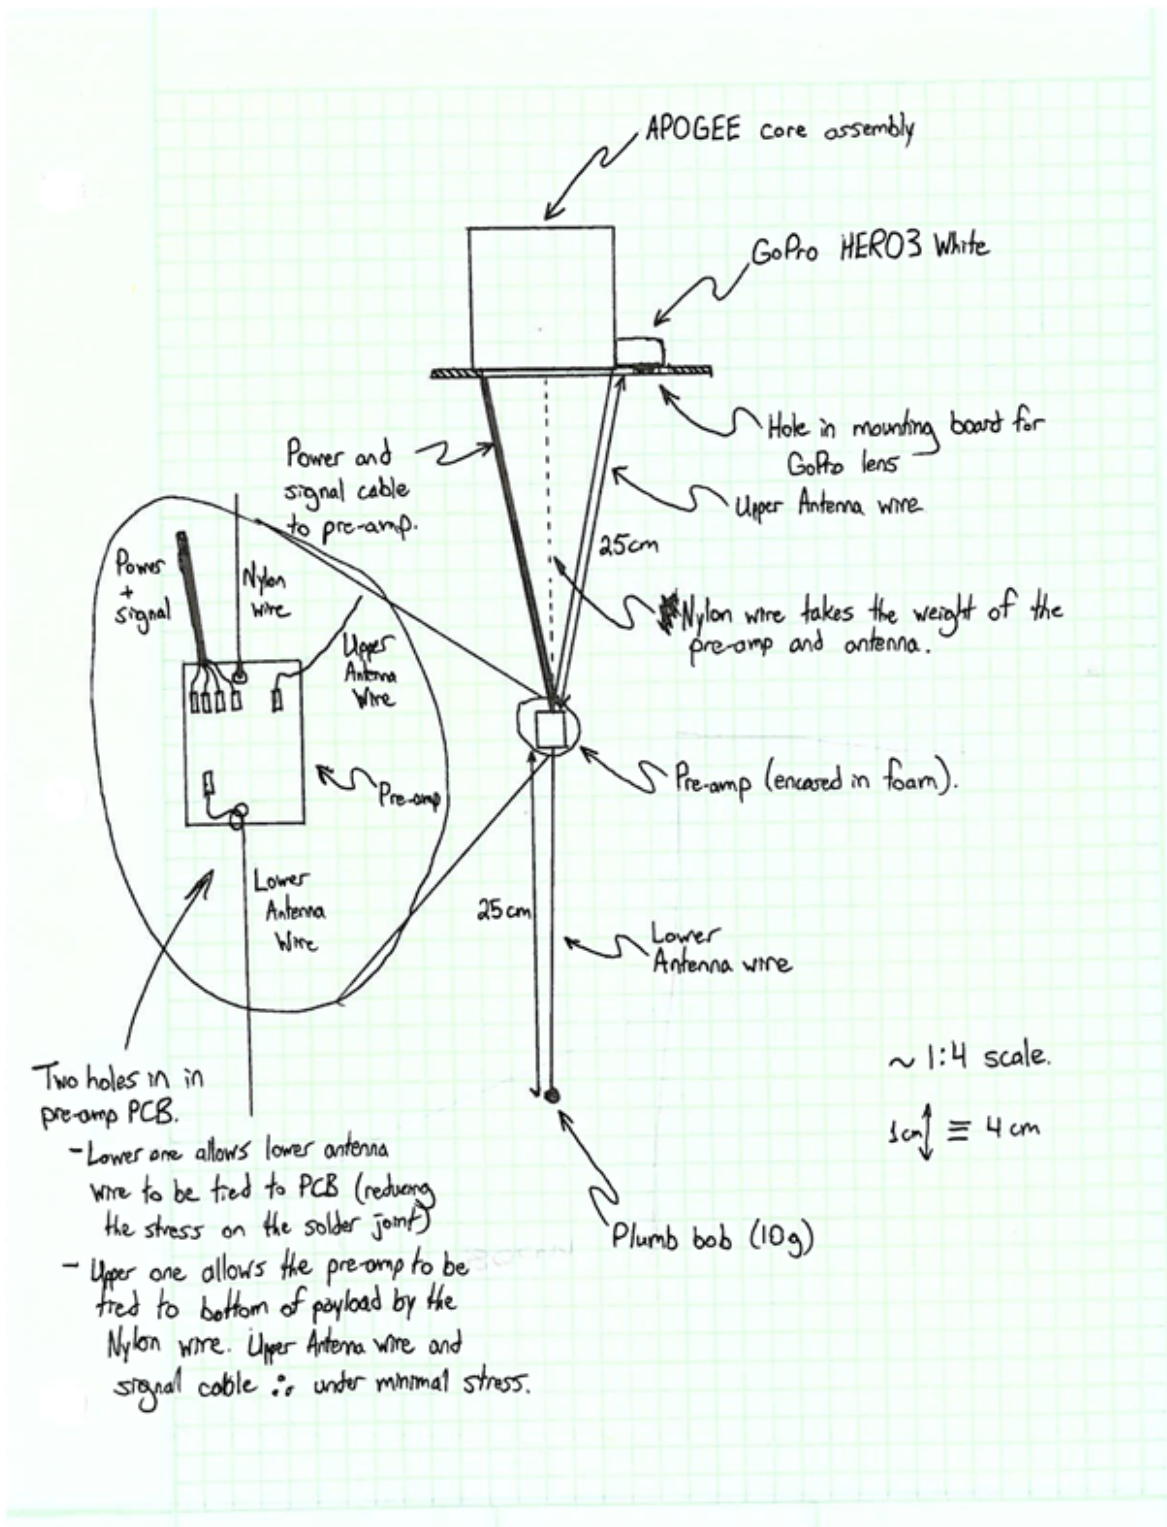 APOGEE core assembly
GoPro HERO3 White
Hole in mounting board for
GoPro lens
Upper Antenna wire
Power and
signal cable
to pre-amp.
25cm
Nylon wire takes the weight of the
pre-amp and antenna.
Power
+
signal
Nylon
wire
Upper
Antenna
Wire
Pre-amp
Pre-amp (encased in foam).
Lower
Antenna
Wire
25cm
Lower
Antenna wire
~ 1:4 scale.
1cm ≡ 4cm
Plumb bob (10g)
Two holes in in
pre-amp PCB.
- Lower one allows lower antenna
wire to be tied to PCB (reducing
the stress on the solder joint)
- Upper one allows the pre-amp to be
tied to bottom of payload by the
Nylon wire. Upper Antenna wire and
signal cable ∴ under minimal stress.